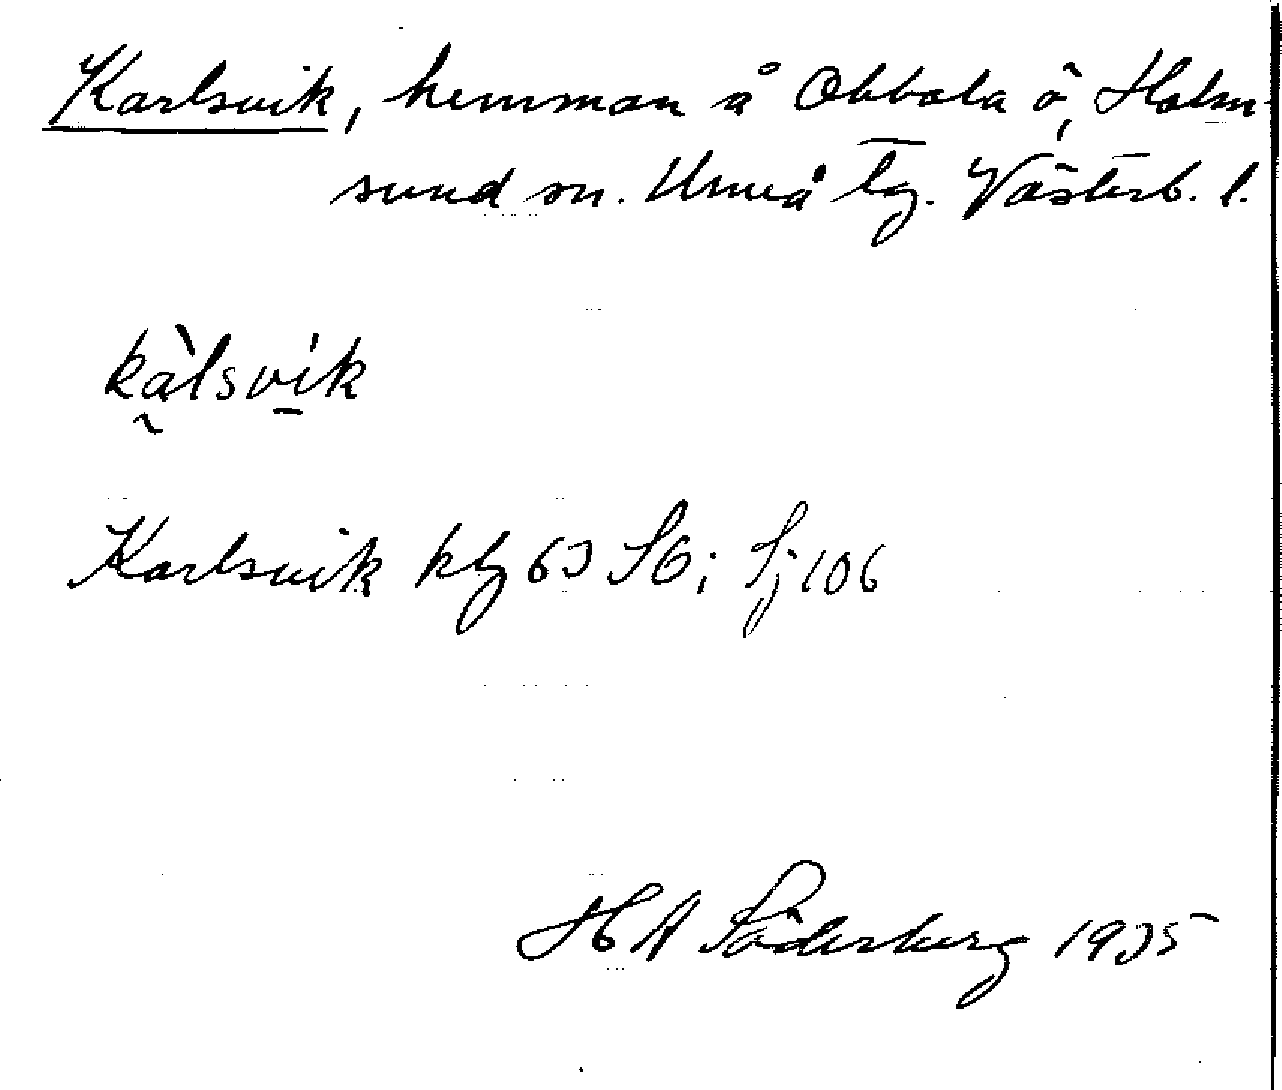 Karlsvik, hemman å Obbola ö, Holm-
sund sn. Umeå tg. Västerb. l.
kàlsvik
Karlsvik kbg 63 S6; Sj 106
H A Söderberg 1935